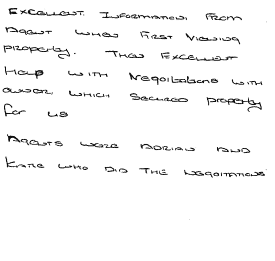 Excellent Information From
Agent when First Viewing
property. Then Excellent
Help with Negotiations with
owner which Secured property
for us
Agents were Adrian and
Katie who did the negotiations